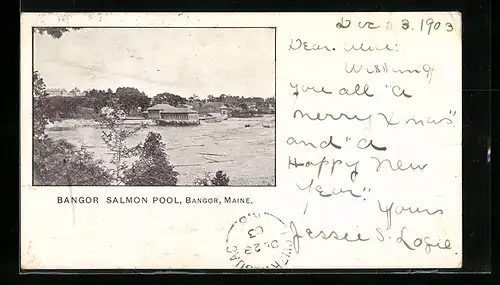 Dec 23. 1903
Dear
Wishing
you all "a
merry Xmas"
and "a
Happy New
Year".
Yours
Jessie S. Logie
BANGOR SALMON POOL, BANGOR, MAINE.
23
03